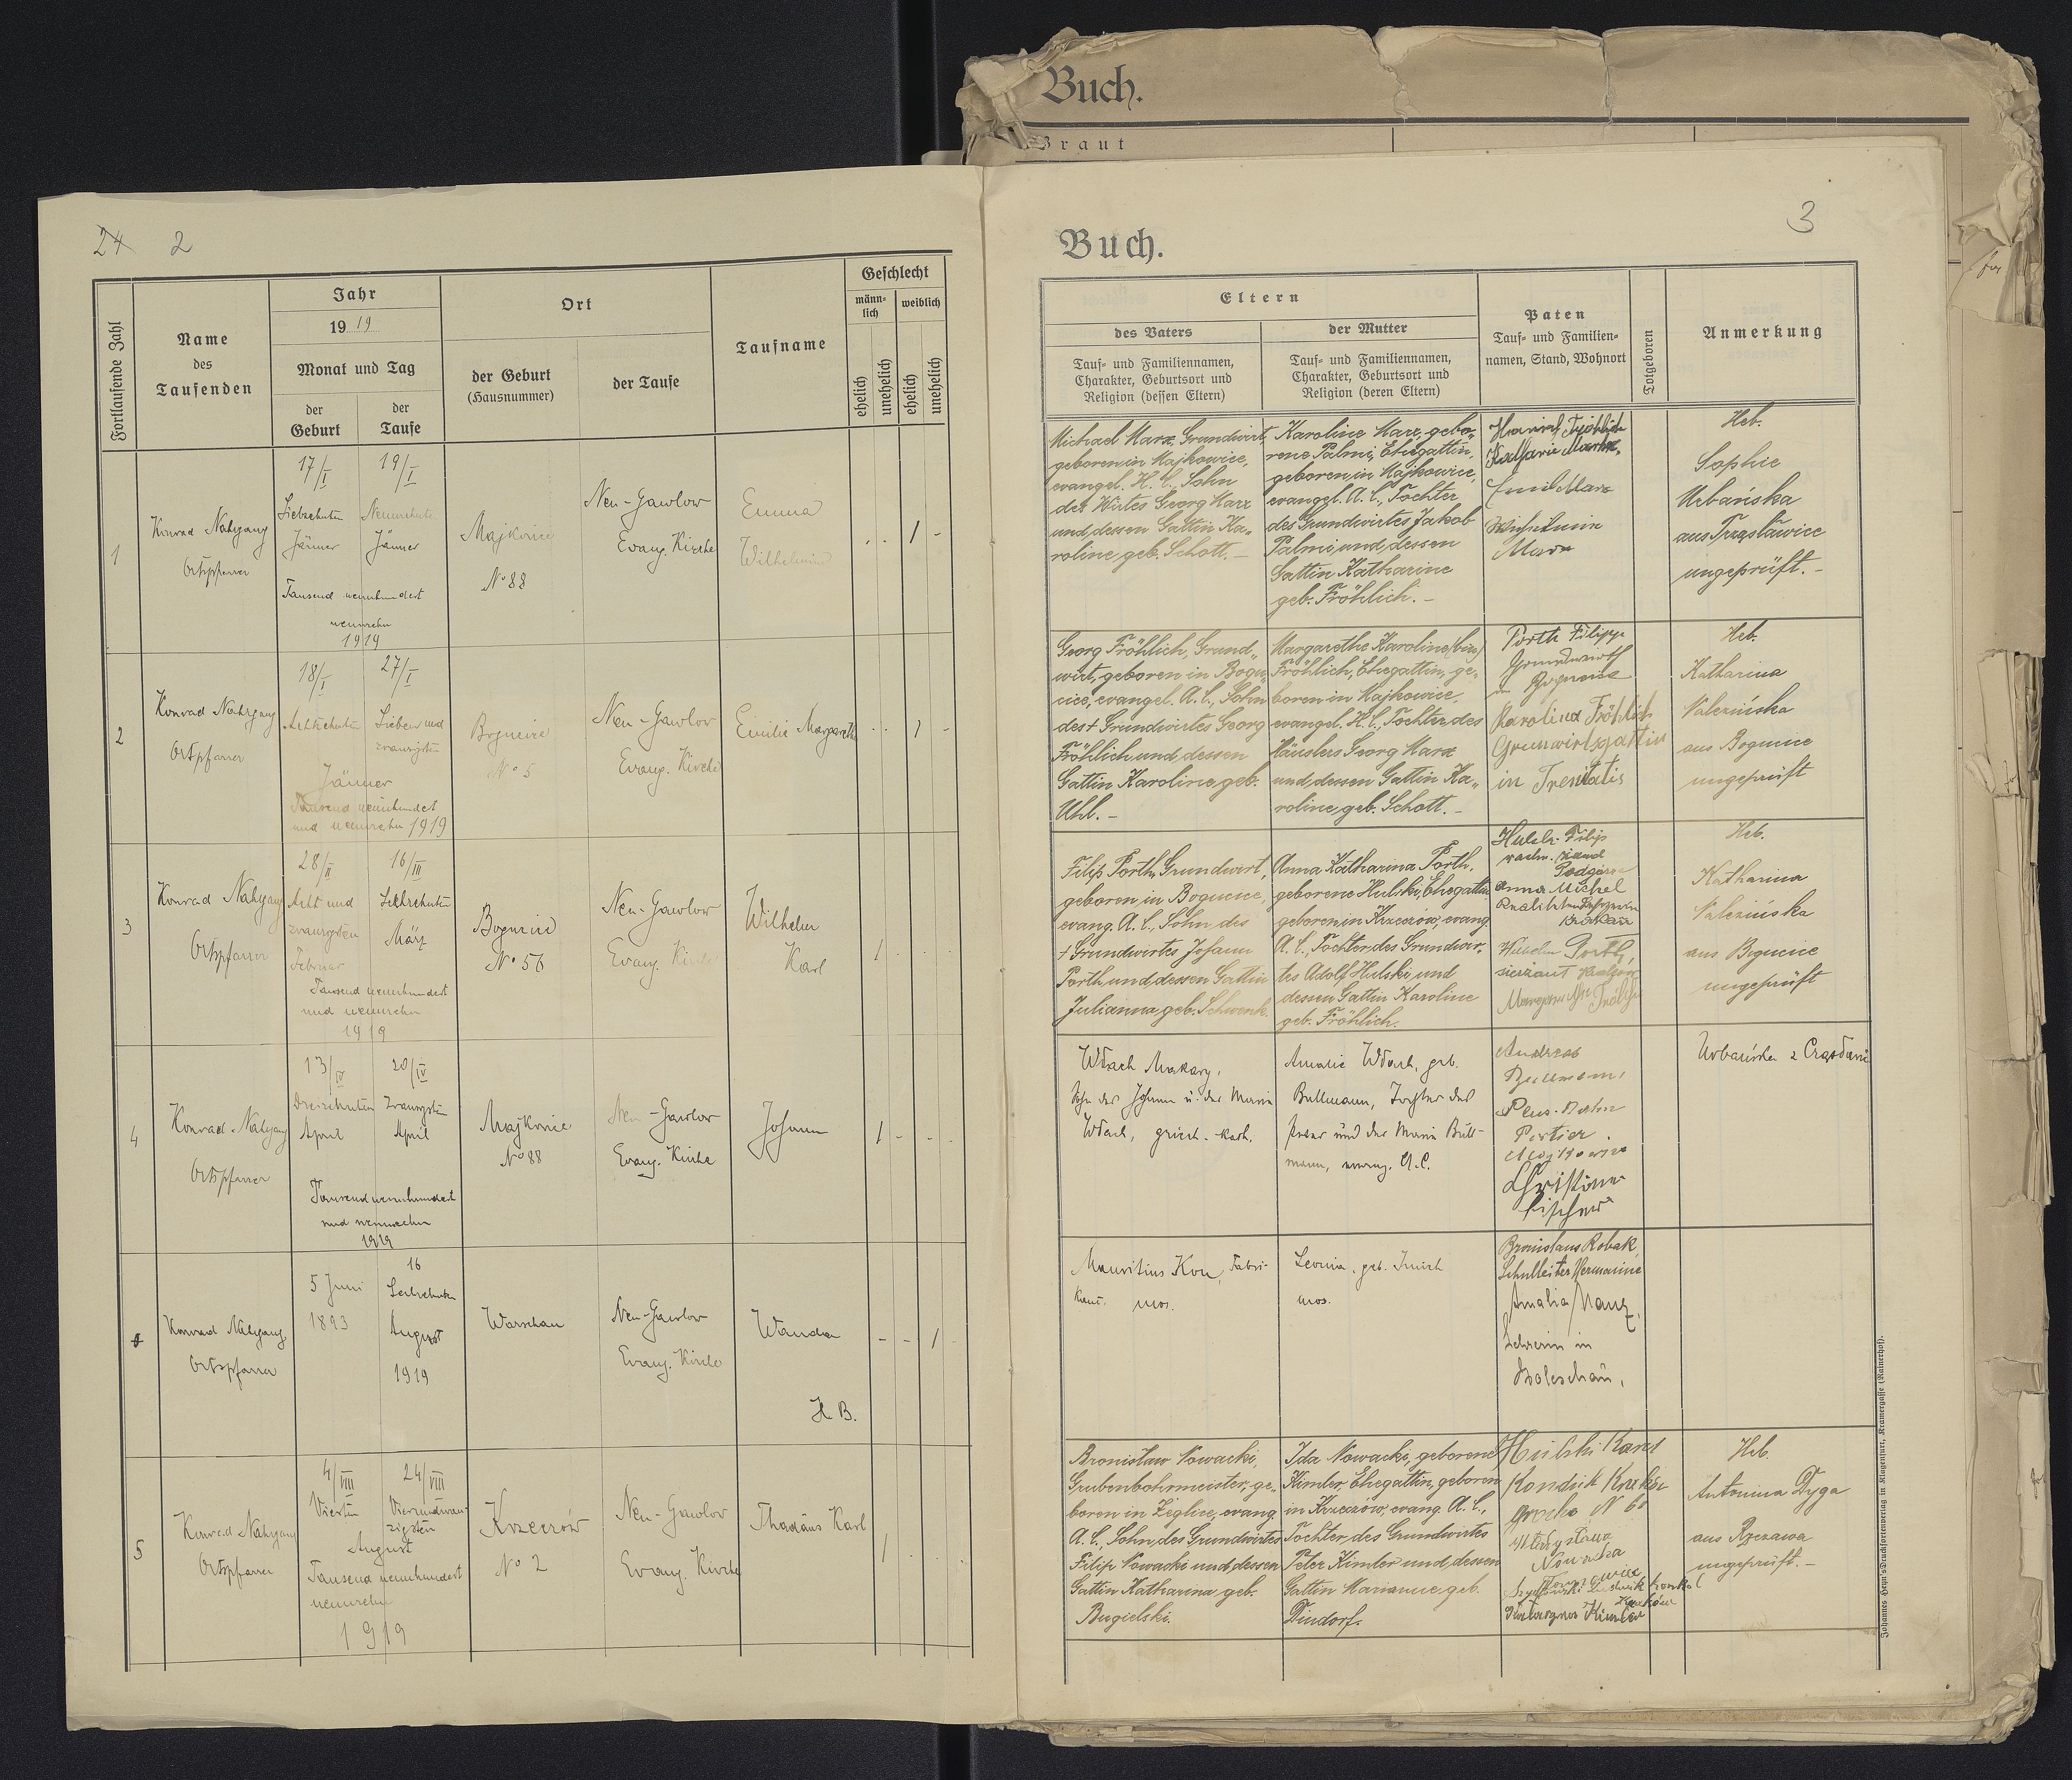 Buch.
Braut
24 2
Fortlaufende Zahl
Name
des
Taufenden
Jahr
1919
Monat und Tag
der
Geburt
der
Taufe
Ort
der Geburt
(Hausnummer)
der Taufe
Taufname
Geschlecht
männ-
lich
weiblich
ehelich
unehelich
ehelich
unehelich
1
Konrad Nahrgang
Ortspfarrer
17/I
Siebzehnten
Jänner
19/I
Neunzehnte
Jänner
Tausend neunhundert
neunzehn
1919
Majkowice
No 88
Neu-Gawlow
Evang. Kirche
Emma
Wilhelmine
2
Konrad Nahrgang
Ortspfarrer
18/I
Achtzehnten
27/I
Sieben und
zwanzigsten
Jänner
Tausend neunhundert
und neunzehn 1919
Bogucice
No 5
Neu-Gawlow
Evang. Kirche
Emilie Margarethe
3
Konrad Nahrgang
Ortspfarrer
28/II
Acht und
zwanzigsten
Februar
16/III
Sechzehnten
März
Tausend neunhundert
und neunzehn
1919
Bogucice
No 56
Neu-Gawlow
Evang. Kirche
Wilhelm
Karl
4
Konrad Nahrgang
Ortspfarrer
13/IV
Dreizehnten
April
20/IV
Zwanzigsten
April
Tausend neunhundert
und neunzehn
1919
Majkowice
No 88
Neu-Gawlow
Evang. Kirche
Johann
Konrad Nahrgang
Ortspfarrer
5 Juni
1893
16
Sechzehnten
August
1919
Warschau
Neu-Gawlow
Evang. Kirche
Wanda
H. B.
5
Konrad Nahrgang
Ortspfarrer
4/VIII
Vierten
24/VIII
Vierundzwan-
zigsten
August
Tausend neunhundert
neunzehn
1919
Krzeczów
No 2
Neu-Gawlow
Evang. Kirche
Thadäus Karl
3
Buch.
Eltern
des Vaters
Tauf- und Familiennamen,
Charakter, Geburtsort und
Religion (dessen Eltern)
der Mutter
Tauf- und Familiennamen,
Charakter, Geburtsort und
Religion (deren Eltern)
Paten
Tauf- und Familien-
namen, Stand, Wohnort
Totgeboren
Anmerkung
Michael Marx, Grundwirt,
geboren in Majkowice,
evangel. H. C., Sohn
des Wirtes Georg Marx
und dessen Gattin Ka-
roline geb. Schott. –
Karoline Marx, gebo-
rene Palmi, Ehegattin,
geboren in Majkowice,
evangel. A. C., Tochter
des Grundwirtes Jakob
Palmi und dessen
Gattin Katharine
geb. Fröhlich. –
Heinrich Fröhlich
Emil Marx
Marx
Heb.
Sophie
Urbańska
aus
ungeprüft. –
Georg Fröhlich, Grund-
wirt, geboren in Bogu-
cice, evangel. A. C., Sohn
des † Grundwirtes Georg
Fröhlich und dessen
Gattin Karoline geb.
Uhl. –
Margarethe Karoline (bin)
Fröhlich, Ehegattin, ge-
boren in Majkowice,
evangel. H. C., Tochter des
Häuslers Georg Marx
und dessen Gattin Ka-
roline geb. Schott. –
Porth Filipp
Grundwirth
in Bogucice
Karolina Fröhlich
Grunwirtsgattin
in Trenitatis
Heb.
Katharina
Valezińska
aus Bogucice
ungeprüft
Filip Porth, Grundwirt,
geboren in Bogucice,
evang. A. C., Sohn des
† Grundwirtes Johann
Porth und dessen Gattin
Julianna geb. Schwenk.
Anna Katharina Porth,
geborene Hulski, Ehegattin,
geboren in Krzeczów, evang.
A. C., Tochter des Grundwir-
tes Adolf Hulski und
dessen Gattin Karoline
geb. Fröhlich.
Filip
Podgórze
Anna Michel
Porth,
Heb.
Katharina
Valezińska
aus Bogucice
ungeprüft
Wdach Makary,
Sohn des Johann u. der Maria
Wdach, griech.-kath.
Amalie Wdach, geb.
Bullmann, Tochter des
Peter und der Maria Bull-
mann, evang. A. C.
Andreas
Bullmann,
Portier
Majkowice
Christina
Fischer
Mauritius Kon, Fabri-
kant. mos.
Leonia, geb.
mos.
Bronislaus Robak,
Schulleiter, Hermanine
Amalia Manz,
Lehrerin in
Heb.
Antonina Dyga
aus Rzezawa
ungeprüft. –
Bronisław Nowacki,
Grubenbohrmeister, ge-
boren in Zeglice, evang.
A. C., Sohn des Grundwirtes
Filip Nowacki und dessen
Gattin Katharina geb.
Bugielski.
Ida Nowacki, geborene
Kimler, Ehegattin, geboren
in Krzeczów, evang. A. C.,
Tochter des Grundwirtes
Peter Kimler und dessen
Gattin Marianne geb.
Dindorf.
Hulski Karol
No 60
Nowacka
Johannes Heyn's Drucksortenverlag in Klagenfurt, Kramergasse (Rainerhof).